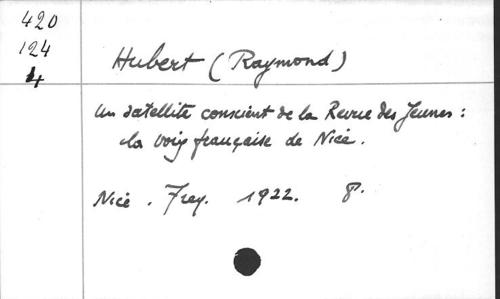 420
124
4
Hubert (Raymond)
Un satellite conscient de la Revue des Jeunes :
la voix française de Nice.
Nice. Frey. 1922. 8°.